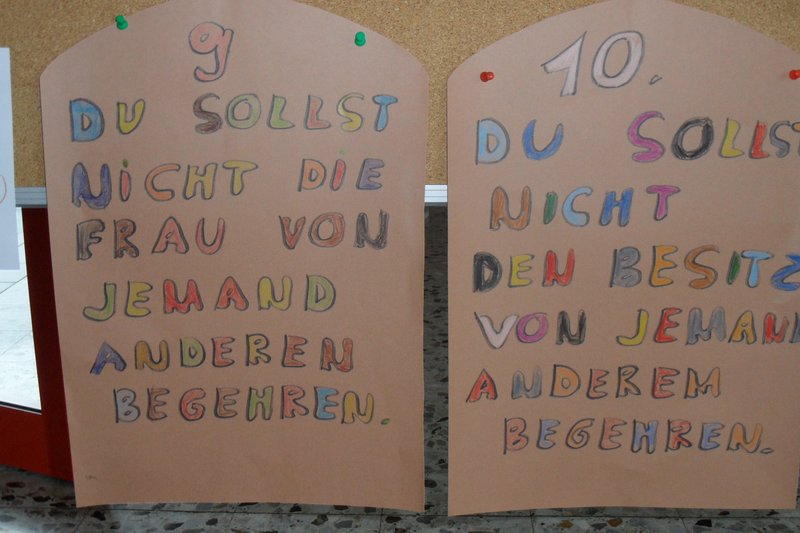 9
DU SOLLST
NiCHT DiE
FRAU VON
JEMAND
ANDEREN
BEGEHREN.
10.
DU SOLLST
NICHT
DEN BESITZ
VON JEMAND
ANDEREM
BEGEHREN.